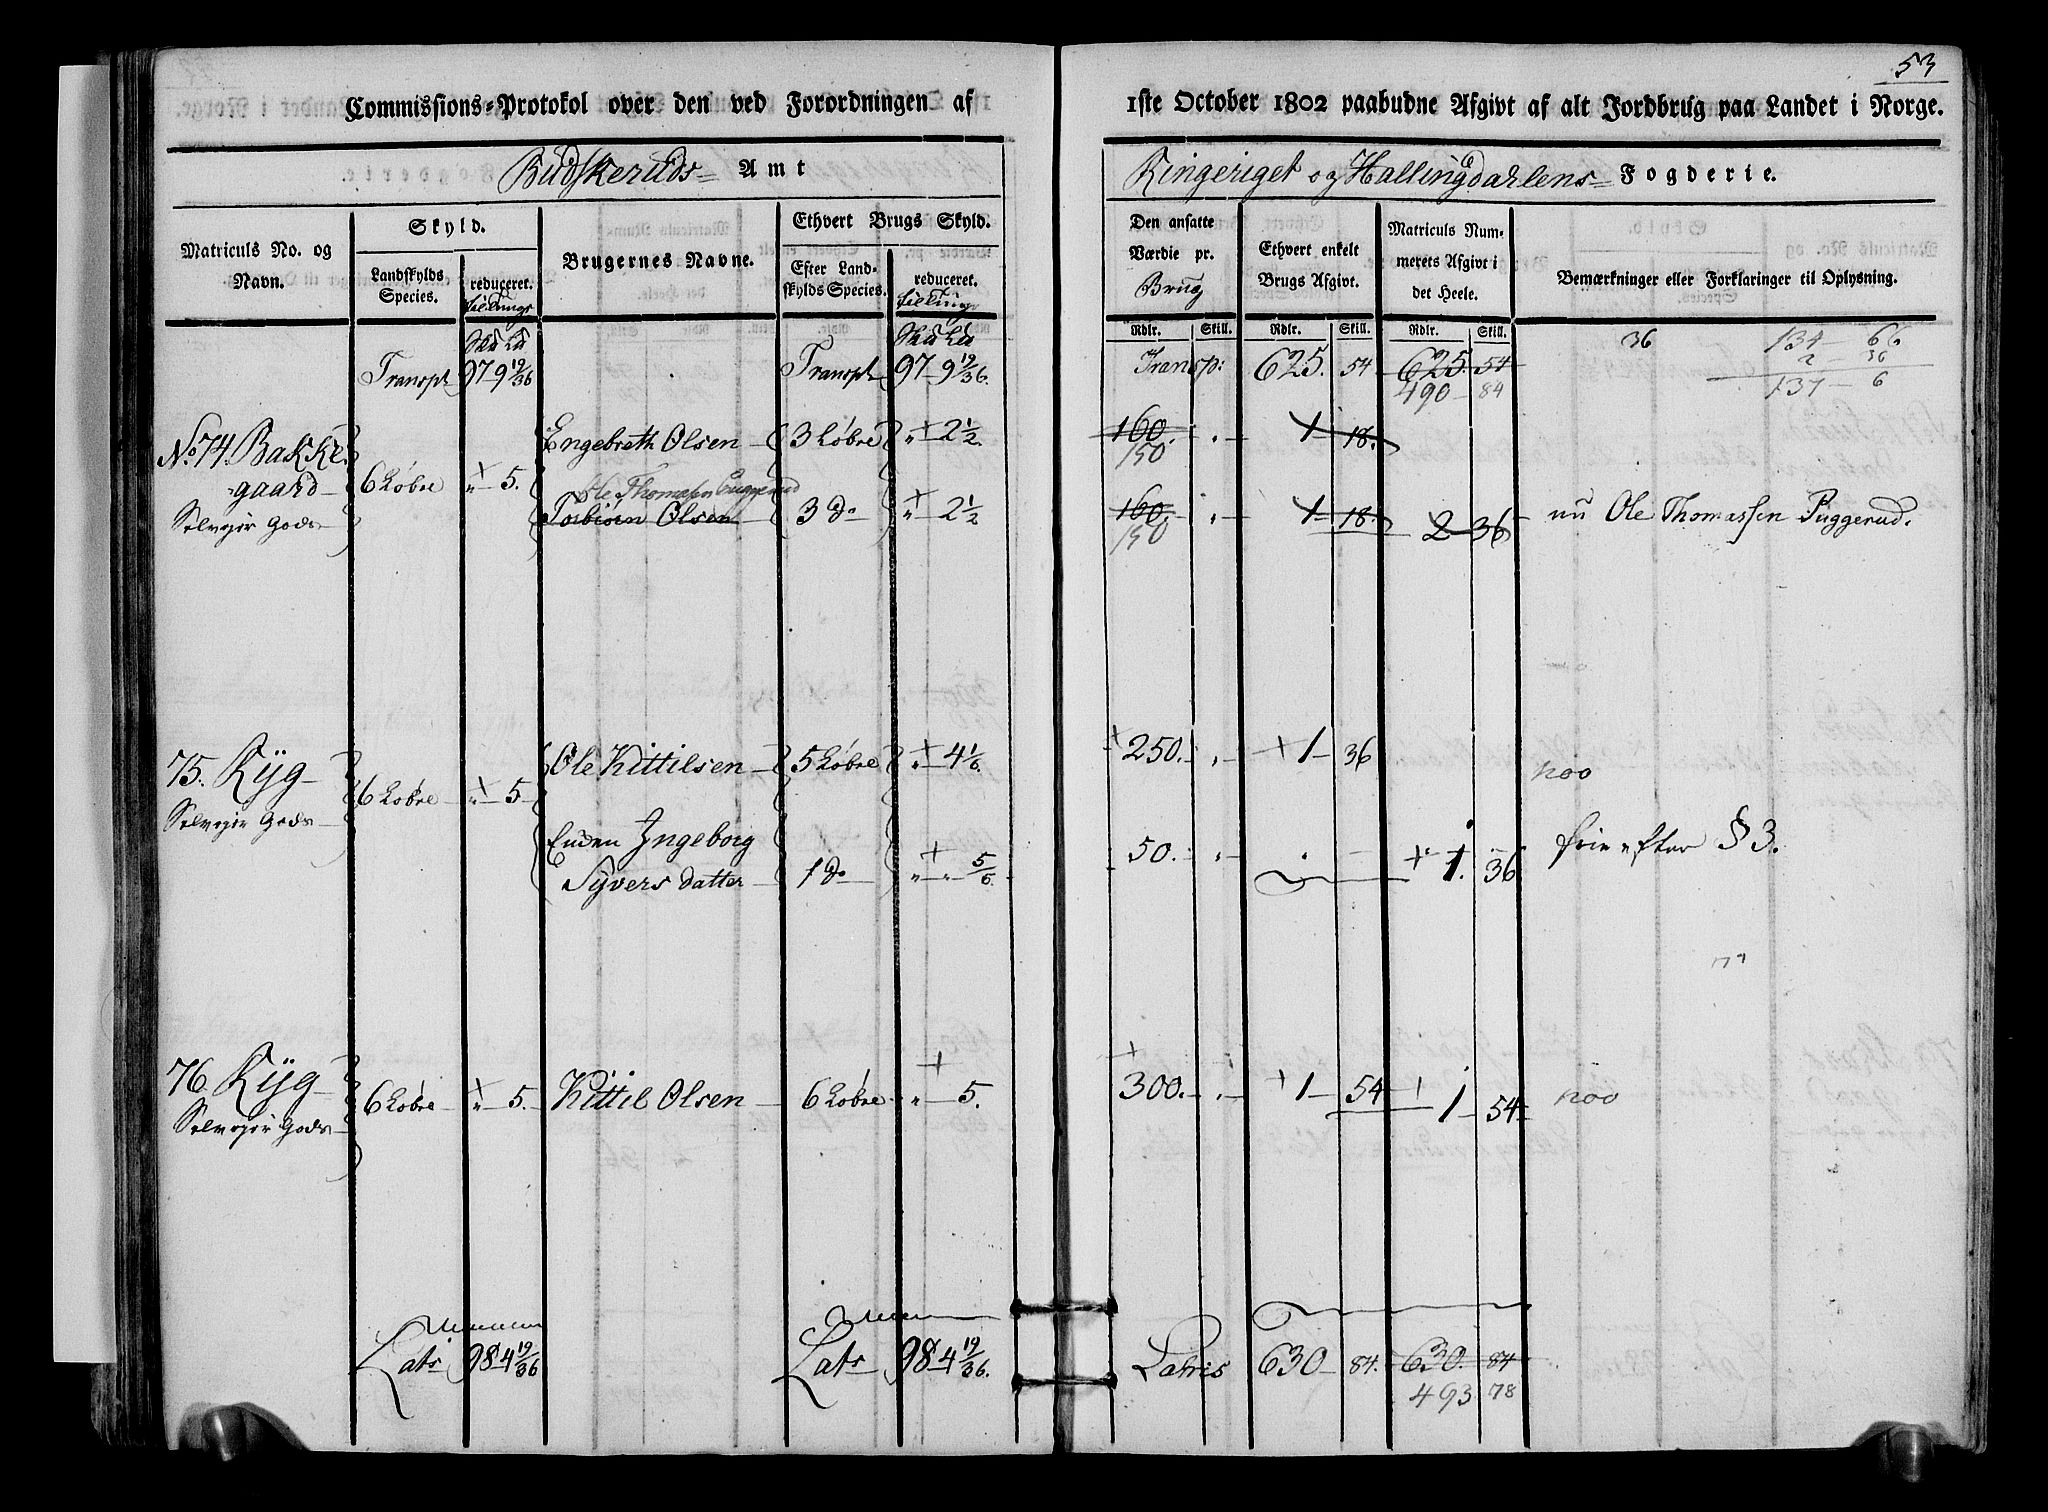 53
Commissions-Protokol over den ved Forordningen af 1ste October 1802 paabudne Afgivt af alt Jordbrug paa Landet i Norge.
Budskeruds Amt Ringeriget og Hallingdahlens Fogderie.
Matriculs No. og Navn.
Skyld.
Landskylds Species.
reduceret.
Brugernes Navne.
Ethvert Brugs Skyld.
Efter Landskylds Species.
reduceret.
Den ansatte Værdie pr. Brug
Ethvert enkelt Brugs Afgivt.
Matriculs Nummerets Afgivt i det Heele.
Bemærkninger eller Forklaringer til Oplysning.
Rdlr. Skill. Rdlr. Skill. Rdlr. Skill.
36 134 - 66
2 - 36
137 - 6
Transpt 97 - 9 19/36 Transpt 97 - 9 19/36. Transp: 625. 54 625. 54
490 - 84
No. 74. Bakke
gaard
Selvejer Gods
6 Løbre " 5.
Engebreth Olsen 3 Løbre " 2 1/2. 160. " 1 - 18.
150
Ole Thomasen Puggerud
Torbiørn Olsen 3 do " 2 1/2 160. " 1 - 18. 2 - 36 nu Ole Thomassen Puggerud.
150
75. Ryg
Selvejer Gods
6 Løbre " 5.
Ole Kittilsen 5 Løbre " 4 1/6. 250. " 1 - 36
Enken Ingeborg
Syvers datter 1 do " " 5/6. 50. " 1. 36 frie efter § 3.
76. Ryg
Selvejer Gods
6 Løbre " 5. Kittil Olsen 6 Løbre " 5. 300. " 1 - 54 1 - 54
Lats 98 4 19/36 Lats 98 4 19/36. Latris 630 - 84. 630. 84
493 78